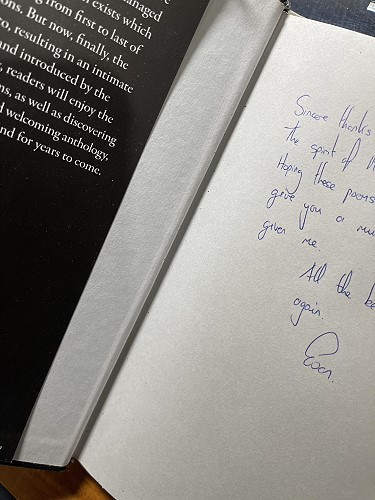 anaged
exists which
g from first to last of
ons. But now, finally, the
to, resulting in an intimate
and introduced by the
, readers will enjoy the
ns, as well as discovering
d welcoming anthology,
nd for years to come.
Sincere thanks
the spirit of
Hoping these poems
give you a
given me.
All the be
again.